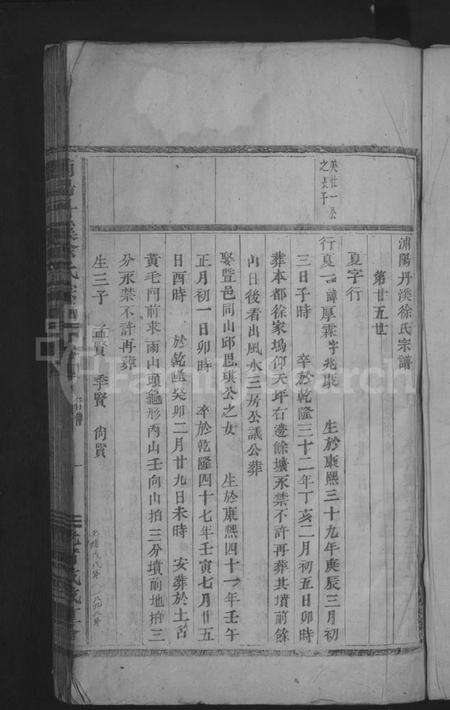 浦陽丹溪徐氏宗譜
第廿五世
夏字行
英廿一公
之長子
行夏一諱厚霖字兆康 生於康熙三十九年庚辰三月初
三日子時 卒於乾隆三十二年丁亥二月初五日卯時
葬本都徐家塢仰天坪右邊餘壙永禁不許再葬其墳前餘
山日後看出風水三房公議公葬
娶暨邑同山邱思琪公之女 生於康熙四十一年壬午
正月初一日卯時 卒於乾隆四十七年壬寅七月廿五
日酉時 於乾隆癸卯二月廿九日未時 安葬於土名
黃毛門前求雨山頭龜形丙山壬向山拍三分墳前地拍三
分永禁不許再葬
生三子 孟賢 季賢 尚賢